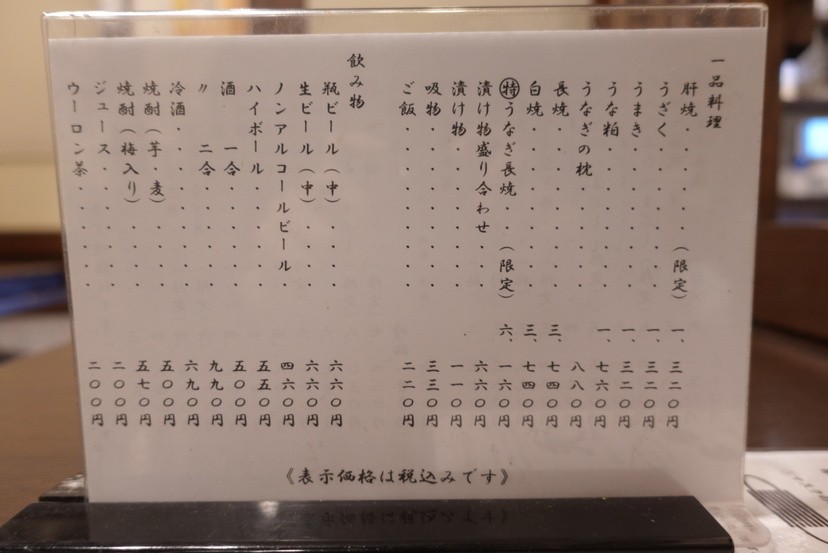 一品料理
肝焼・・・・・(限定) 一、三二〇円
うざく・・・・・・・ 一、三二〇円
うまき・・・・・・・ 一、三二〇円
うな粕・・・・・・・ 一、七六〇円
うなぎの枕・・・・・ 八八〇円
長焼・・・・・・・・ 三、七四〇円
白焼・・・・・・・・ 三、七四〇円
㊕うなぎ長焼 (限定) 六、一六〇円
漬け物盛り合わせ・・ 六六〇円
漬け物・・・・・・・ 一一〇円
吸物・・・・・・・・ 三三〇円
ご飯・・・・・・・・ 二二〇円
飲み物
瓶ビール(中)・・・・ 六六〇円
生ビール(中)・・・・ 六六〇円
ノンアルコールビール・ 四六〇円
ハイボール・・・・・ 五五〇円
酒 一合・・・・・ 五〇〇円
〃 二合・・・・・ 九九〇円
冷酒・・・・・・・・ 六九〇円
焼酎(芋・麦)・・・・ 五〇〇円
焼酎(梅入り)・・・・ 五七〇円
ジュース・・・・・・ 二〇〇円
ウーロン茶・・・・・ 二〇〇円
《表示価格は税込みです》